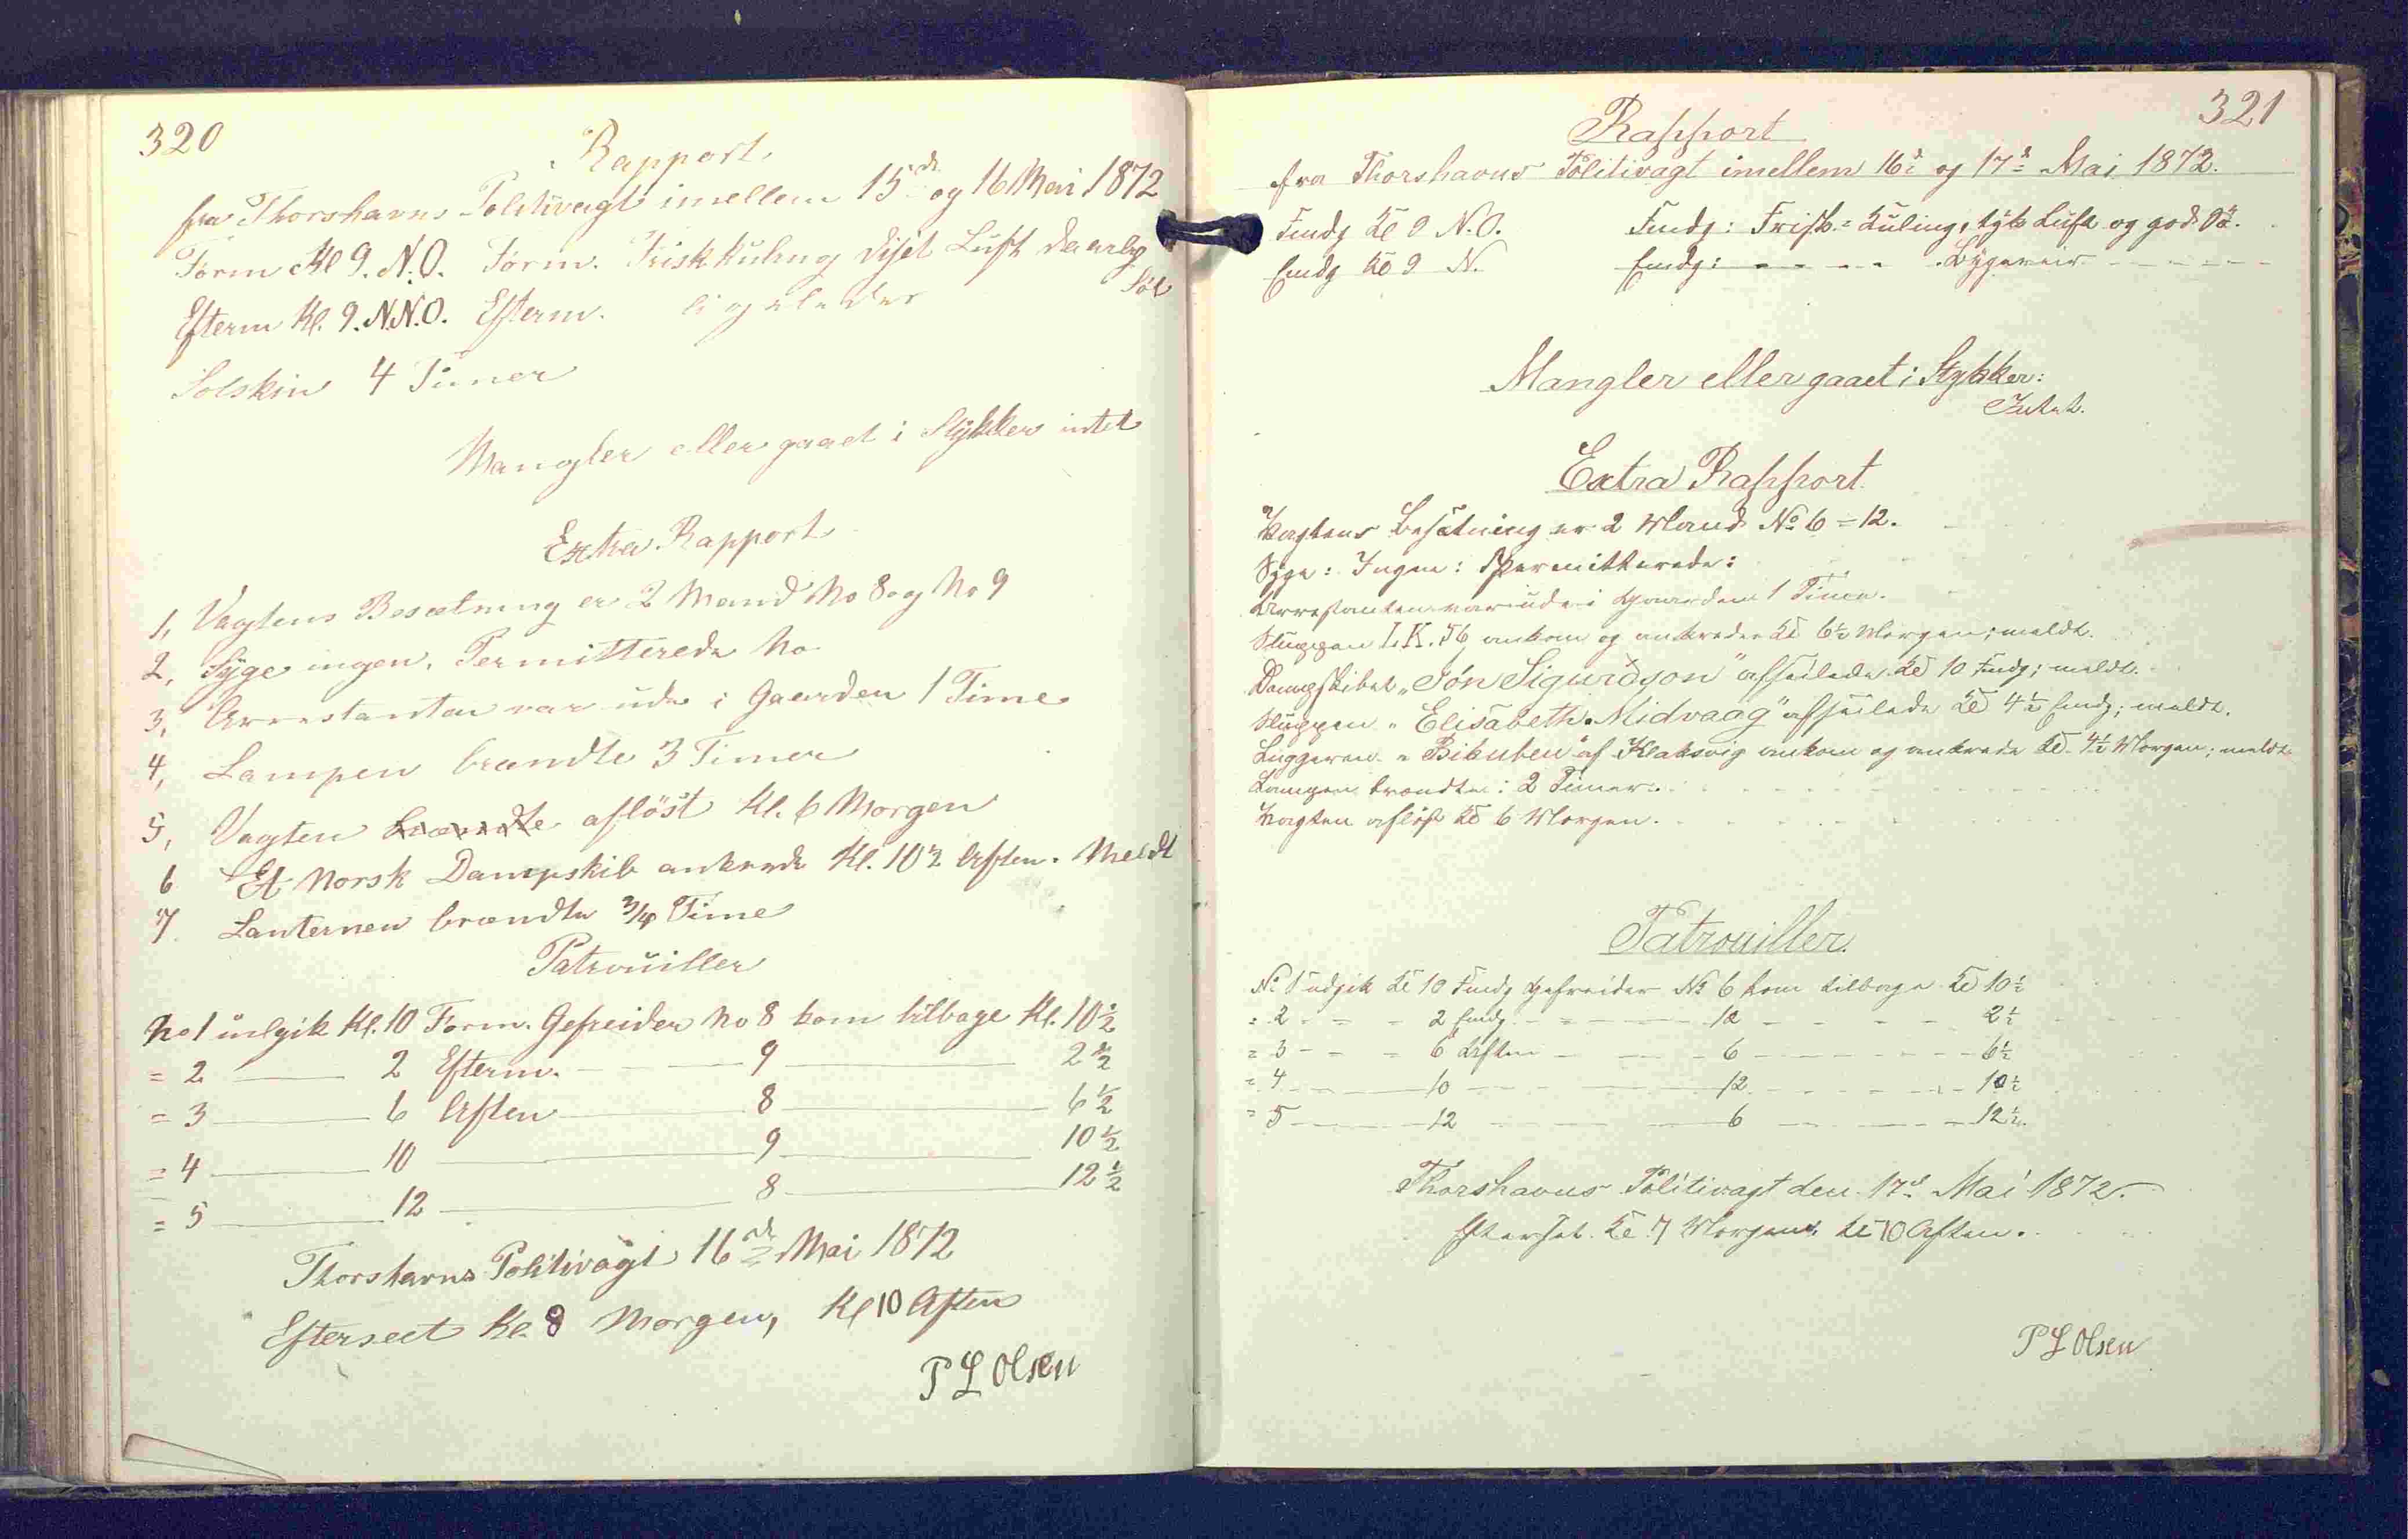 320
Rapport
fra Thorshavns Politivagt imellem 15de og 16 Mai 1872
Form Kl 9. N.O. Form. Frisk Kuling Diset Luft daarlig
Söe
Efterm Kl. 9. N.N.O. Efterm. ligeledes
Solskin 4 Timer
Mangler eller gaaet i Stykker intet
Extra Rapport
1, Vagtens Besætning er 2 Mand No 8 og No 9
2, Syge ingen. Permitterede No
3, Arrestanten var ude i Gaarden 1 Time
4, Lampen brændte 3 Timer
5, Vagten brændte aflöst Kl. 6 Morgen
6 Et Norsk Dampskib ankrede Kl. 10½ Aften. Meldt
7. Lanternen brændte ¾ Time
Patrouiller
No 1 udgik Kl. 10 Form. Gefreider No 8 kom tilbage Kl. 10½
= 2 — 2 Efterm. — 9 — 2½
= 3 — 6 Aften — 8 — 6½
= 4 — 10 — 9 — 10½
= 5 — 12 — 8 — 12½
Thorshavns Politivagt 16de Mai 1872
Efterseet Kl. 8 Morgen, Kl 10 Aften
P L Olsen
321
Rapport
fra Thorshavns Politivagt imellem 16d og 17d Mai 1872.
Fmdg Kl 9 N.O. Fmdg: Frisk = Kuling, tyk Luft og god Sö.
Emdg Kl 9 N. Emdg: - - - - Bygeveir - - - -
Mangler eller gaaet i Stykker:
Intet.
Extra Rapport
Vagtens Besætning er 2 Mand No 6 = 12.
Syge: Ingen: Permitterede:
Arrestanten var ude i Gaarden 1 Time.
Sluppen L.K. 56 ankom og ankrede Kl 6½ Morgen; meldt.
Dampskibet „Jón Sigurðson" afseilede Kl 10 Fmdg; meldt.
Sluppen „Elisabeth Midvaag" afseilede Kl 4½ Emdg; meldt.
Luggeren „Bikuben" af Klaksvig ankom og ankrede Kl. 4½ Morgen; meldt
Lampen brændte i 2 Timer.
Vagten aflöst Kl 6 Morgen.
Patrouiller.
No 1 udgik Kl 10 Fmdg Gefreider No 6 kom tilbage Kl 10½
= 2 - - - 2 Emdg - - - 12 - - - 2½
= 3 - - - 6 Aften - - - 6 - - - 6½
= 4 - - - 10 - - - 12 - - - 10½
= 5 - - - 12 - - - 6 - - - 12½.
Thorshavns Politivagt den 17d Mai 1872.
Efterset Kl 7 Morgen, Kl 10 Aften.
P L Olsen